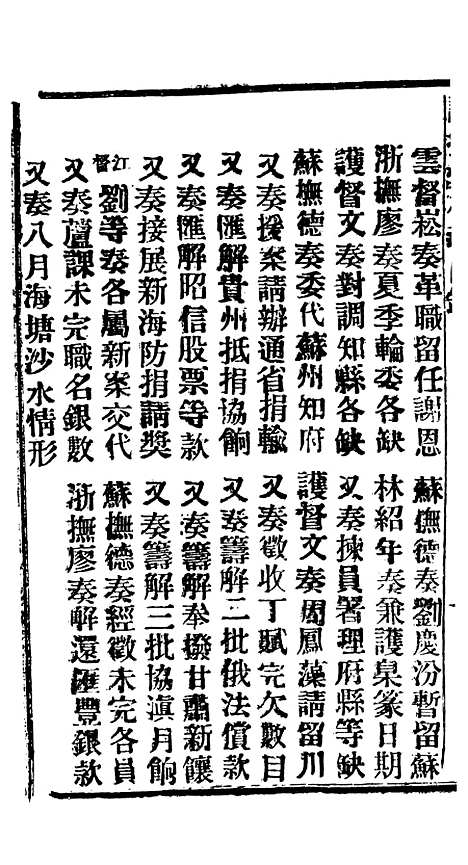 雲督崧奏革職留任謝恩
蘇撫德奏劉慶汾暫留蘇
浙撫廖奏夏季輪委各缺
林紹年奏兼護臬篆日期
護督文奏對調知縣各缺
又奏揀員署理府縣等缺
蘇撫德奏委代蘇州知府
護督文奏周鳳藻請留川
又奏援案請辦通省捐輸
又奏徵收丁賦完欠數目
又奏匯解貴州抵捐協餉
又奏籌解二批俄法償款
又奏匯解昭信股票等款
又奏籌解奉撥甘肅新饟
又奏接展新海防捐請獎
又奏籌解三批協滇月餉
江督劉等奏各屬新案交代
蘇撫德奏經徵未完各員
又奏蘆課未完職名銀數
浙撫廖奏解還匯豐銀款
又奏八月海塘沙水情形